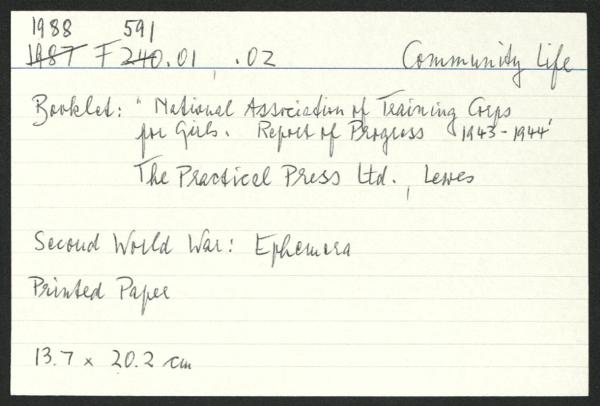 1988 591
1987 F 240.01, .02 Community Life
Booklet: "National Association of Training Corps
for Girls. Report of Progress 1943-1944'
The Practical Press Ltd., Lewes
Second World War: Ephemera
Printed Paper
13.7 x 20.2 cm